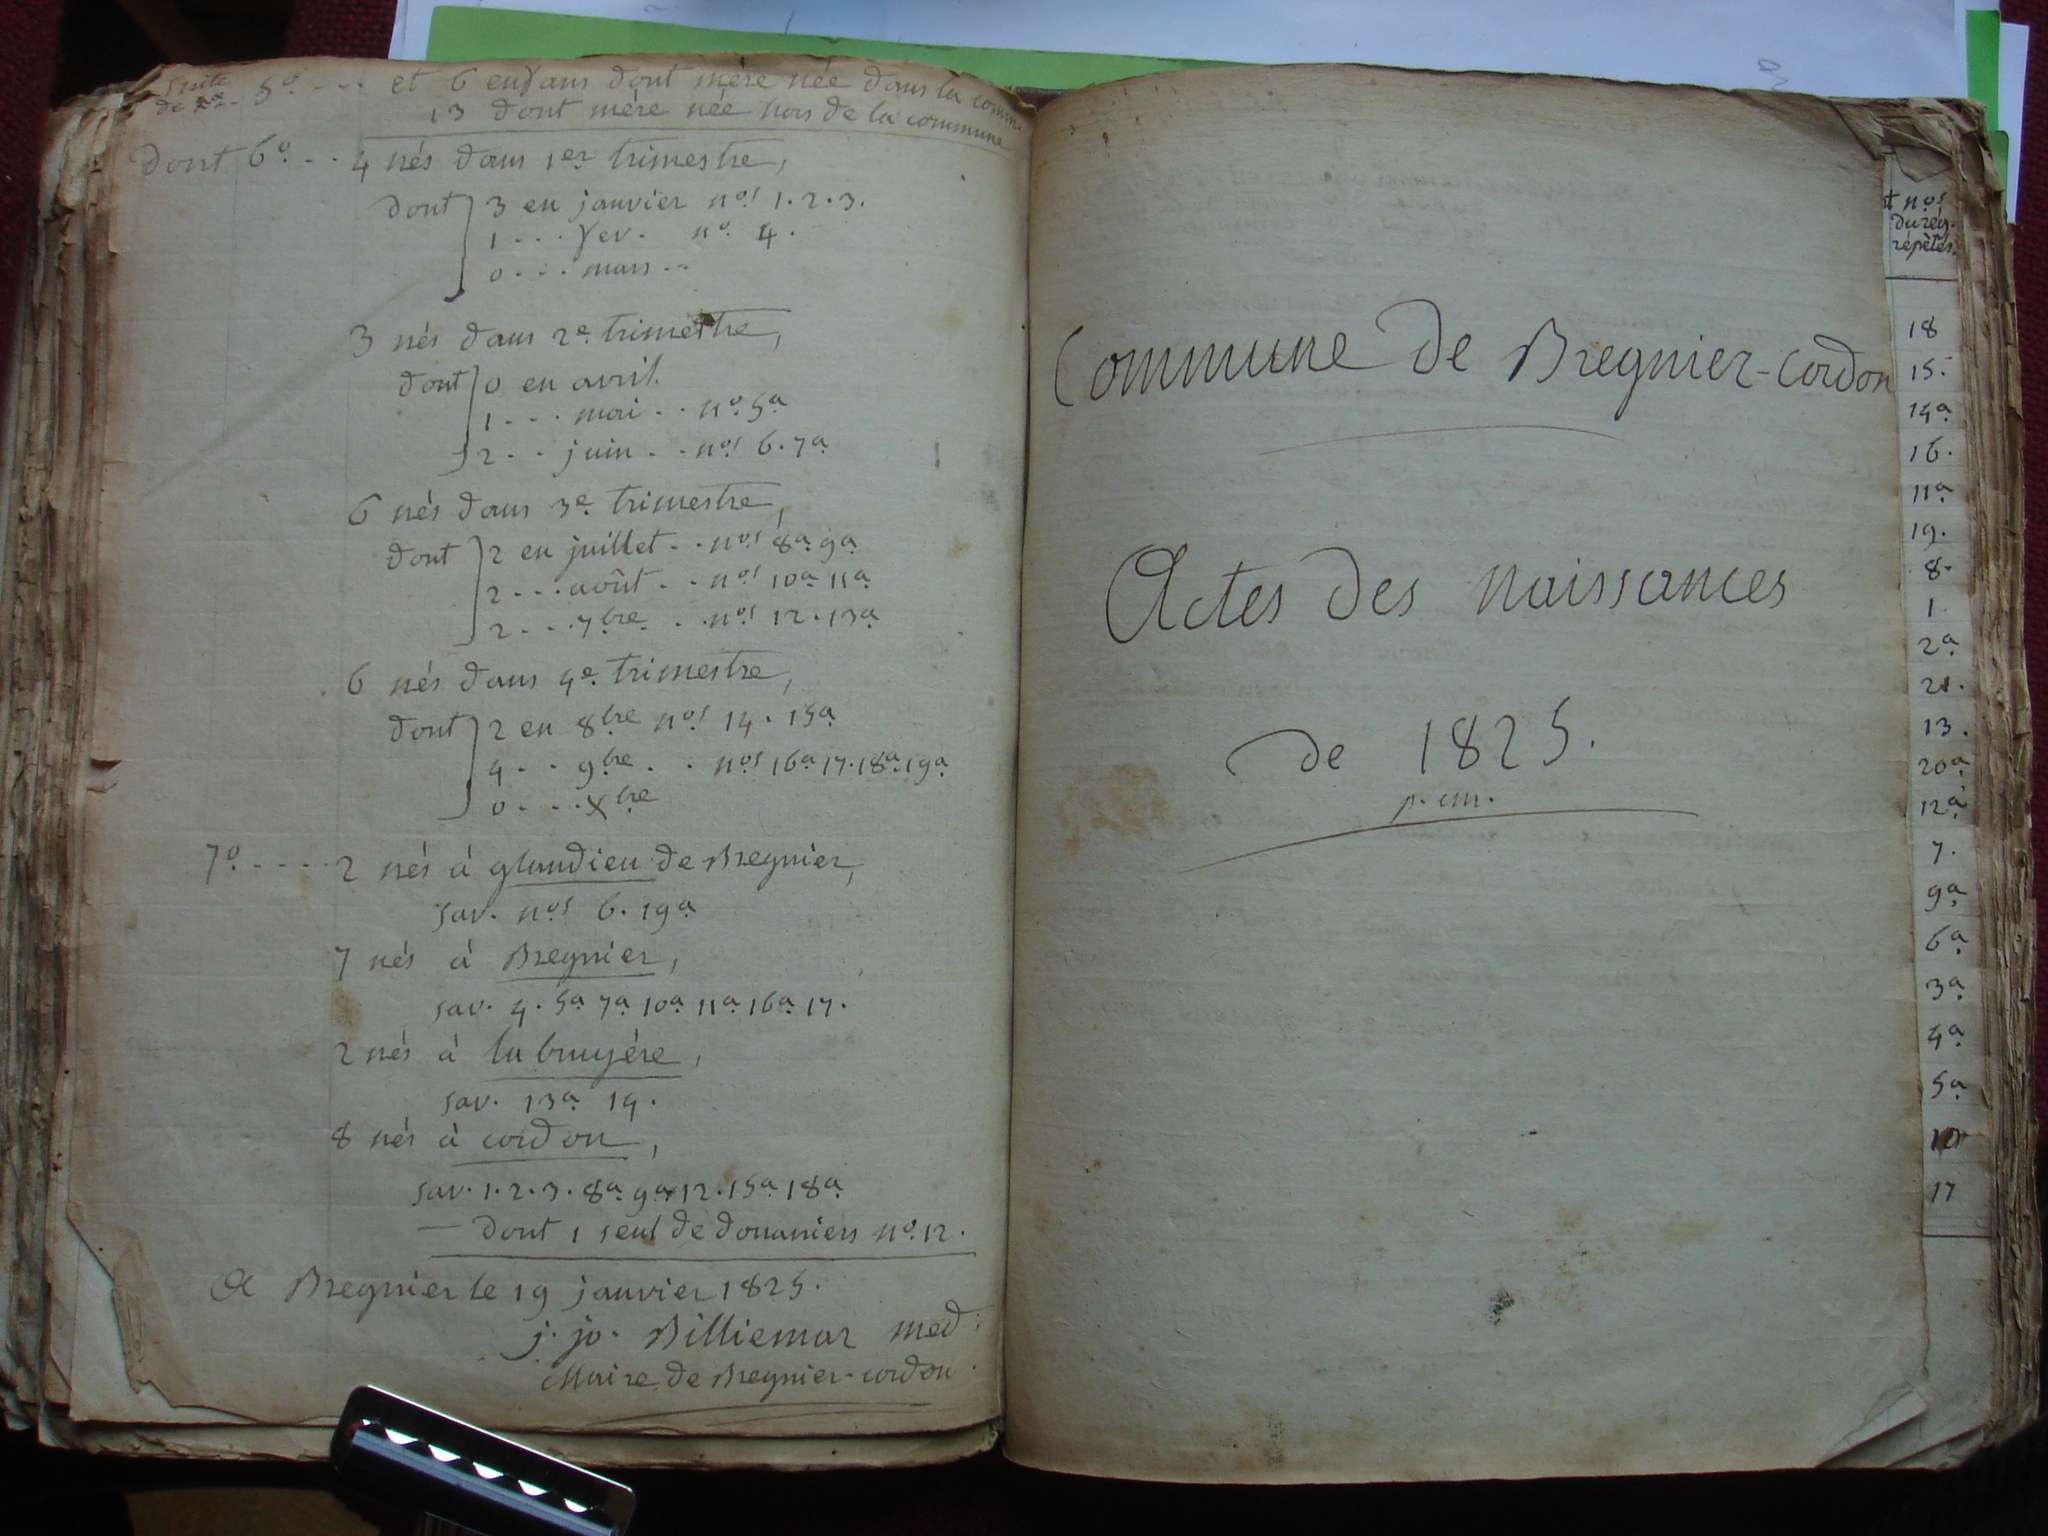 suite de 5º - - - et 6 enfans dont mère née dans la comm.
13 dont mère née hors de la commune
dont 6º - - 4 nés dans 1er trimestre,
dont 3 en janvier nos 1. 2. 3.
1 - - - fev. no 4.
0 - - - mars - -
3 nés dans 2e trimestre,
dont 0 en avril.
1 - - - mai - - no 5a
2 - - juin - - nos 6. 7a
6 nés dans 3e trimestre,
dont 2 en juillet - - nos 8a 9a
2 - - - août - - nos 10a 11a
2 - - - 7bre - - nos 12. 13a
6 nés dans 4e trimestre,
dont 2 en 8bre nos 14. 15a
4 - - 9bre - - nos 16a 17. 18a 19a
0 - - - Xbre
7º - - - - 2 nés à glandieu de Bregnier,
sav. nos 6. 19a
7 nés à Bregnier,
sav. 4. 5a 7a 10a 11a 16a 17.
2 nés à la bruyére,
sav. 13a 14.
8 nés à cordon,
sav. 1. 2. 3. 8a 9a 12. 15a 18a
— dont 1 seul de douaniers no 12.
A Bregnier le 19 janvier 1825.
j. jo. Billiemaz med:
Maire de Bregnier-cordon.
Commune de Bregnier-cordon
Actes des naissances
de 1825.
nos
du rég.
répètés.
18
15.
14a
16.
11a
19.
8.
1.
2a
21.
13.
20a
12a
7.
9a
6a
3a
4a
5a
10
17